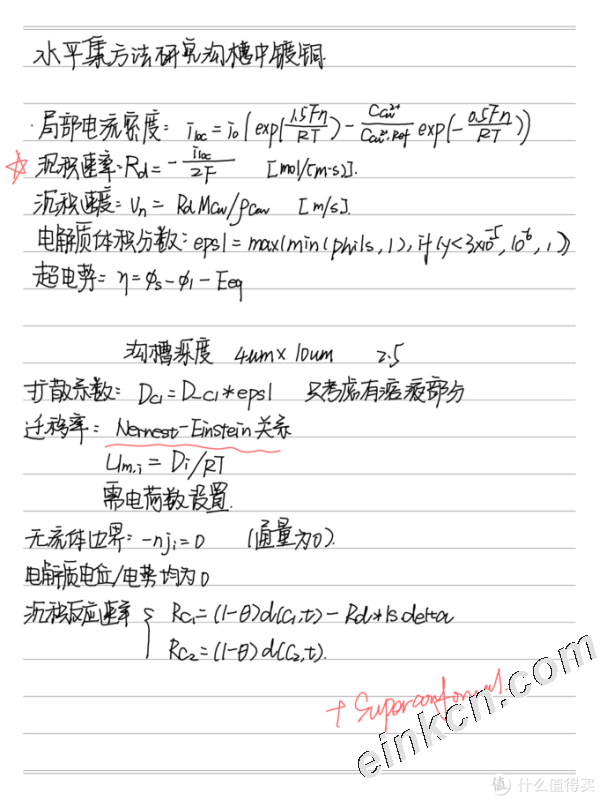 水平集方法研究沟槽中镀铜
·局部电流密度: i_loc = i_0 (exp(1.5Fη/RT) - C_Cu²⁺/C_Cu²⁺,Ref exp(-0.5Fη/RT))
☆沉积速率: Rd = -i_loc/2F [mol/(m·s)].
沉积速度: Un = Rd Mcu/ρcu [m/s].
电解质体积分数: epsl = max(min(phils,1), if(y<3×10⁻⁵, 10⁻⁶, 1))
超电势: η = ϕs - ϕl - Eeq
沟槽深度 4um×10um 2.5
扩散系数: Dc1 = D_c1*epsl 只考虑有溶液部分
迁移率: Nernest-Einstein关系
Um,i = Di/RT
需电荷数设置.
无流体边界: -nji=0 (通量为0).
电解质电位/电势均为0
沉积反应速率 { Rc1 = (1-θ)d(C1,t) - Rd*ls.delta
Rc2 = (1-θ)d(C2,t).
+ Superconformal.
einkcn.com
值 什么值得买